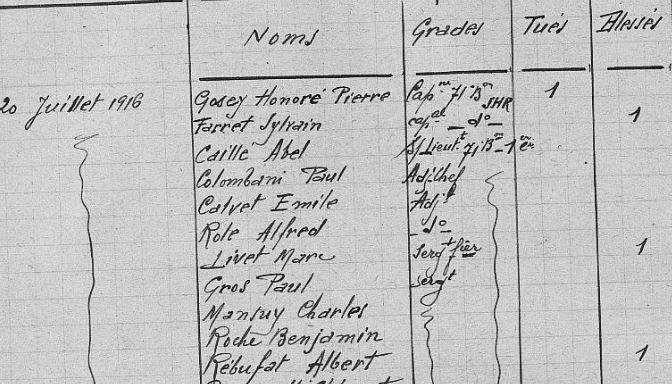 Noms Grades Tués Blessés
20 Juillet 1916 Gosey Honoré Pierre Cap.ne 71e Bon SHR 1
Farret Sylvain cap.al _ do _ 1
Caille Abel S/Lieut.t 71 Bon - 1er
Colombani Paul Adj. chef
Calvet Emile Adj.t
Role Alfred _ do _
Livet Marc Serg.t fier 1
Gros Paul Serg.t
Mansuy Charles
Roche Benjamin
Rébufat Albert 1